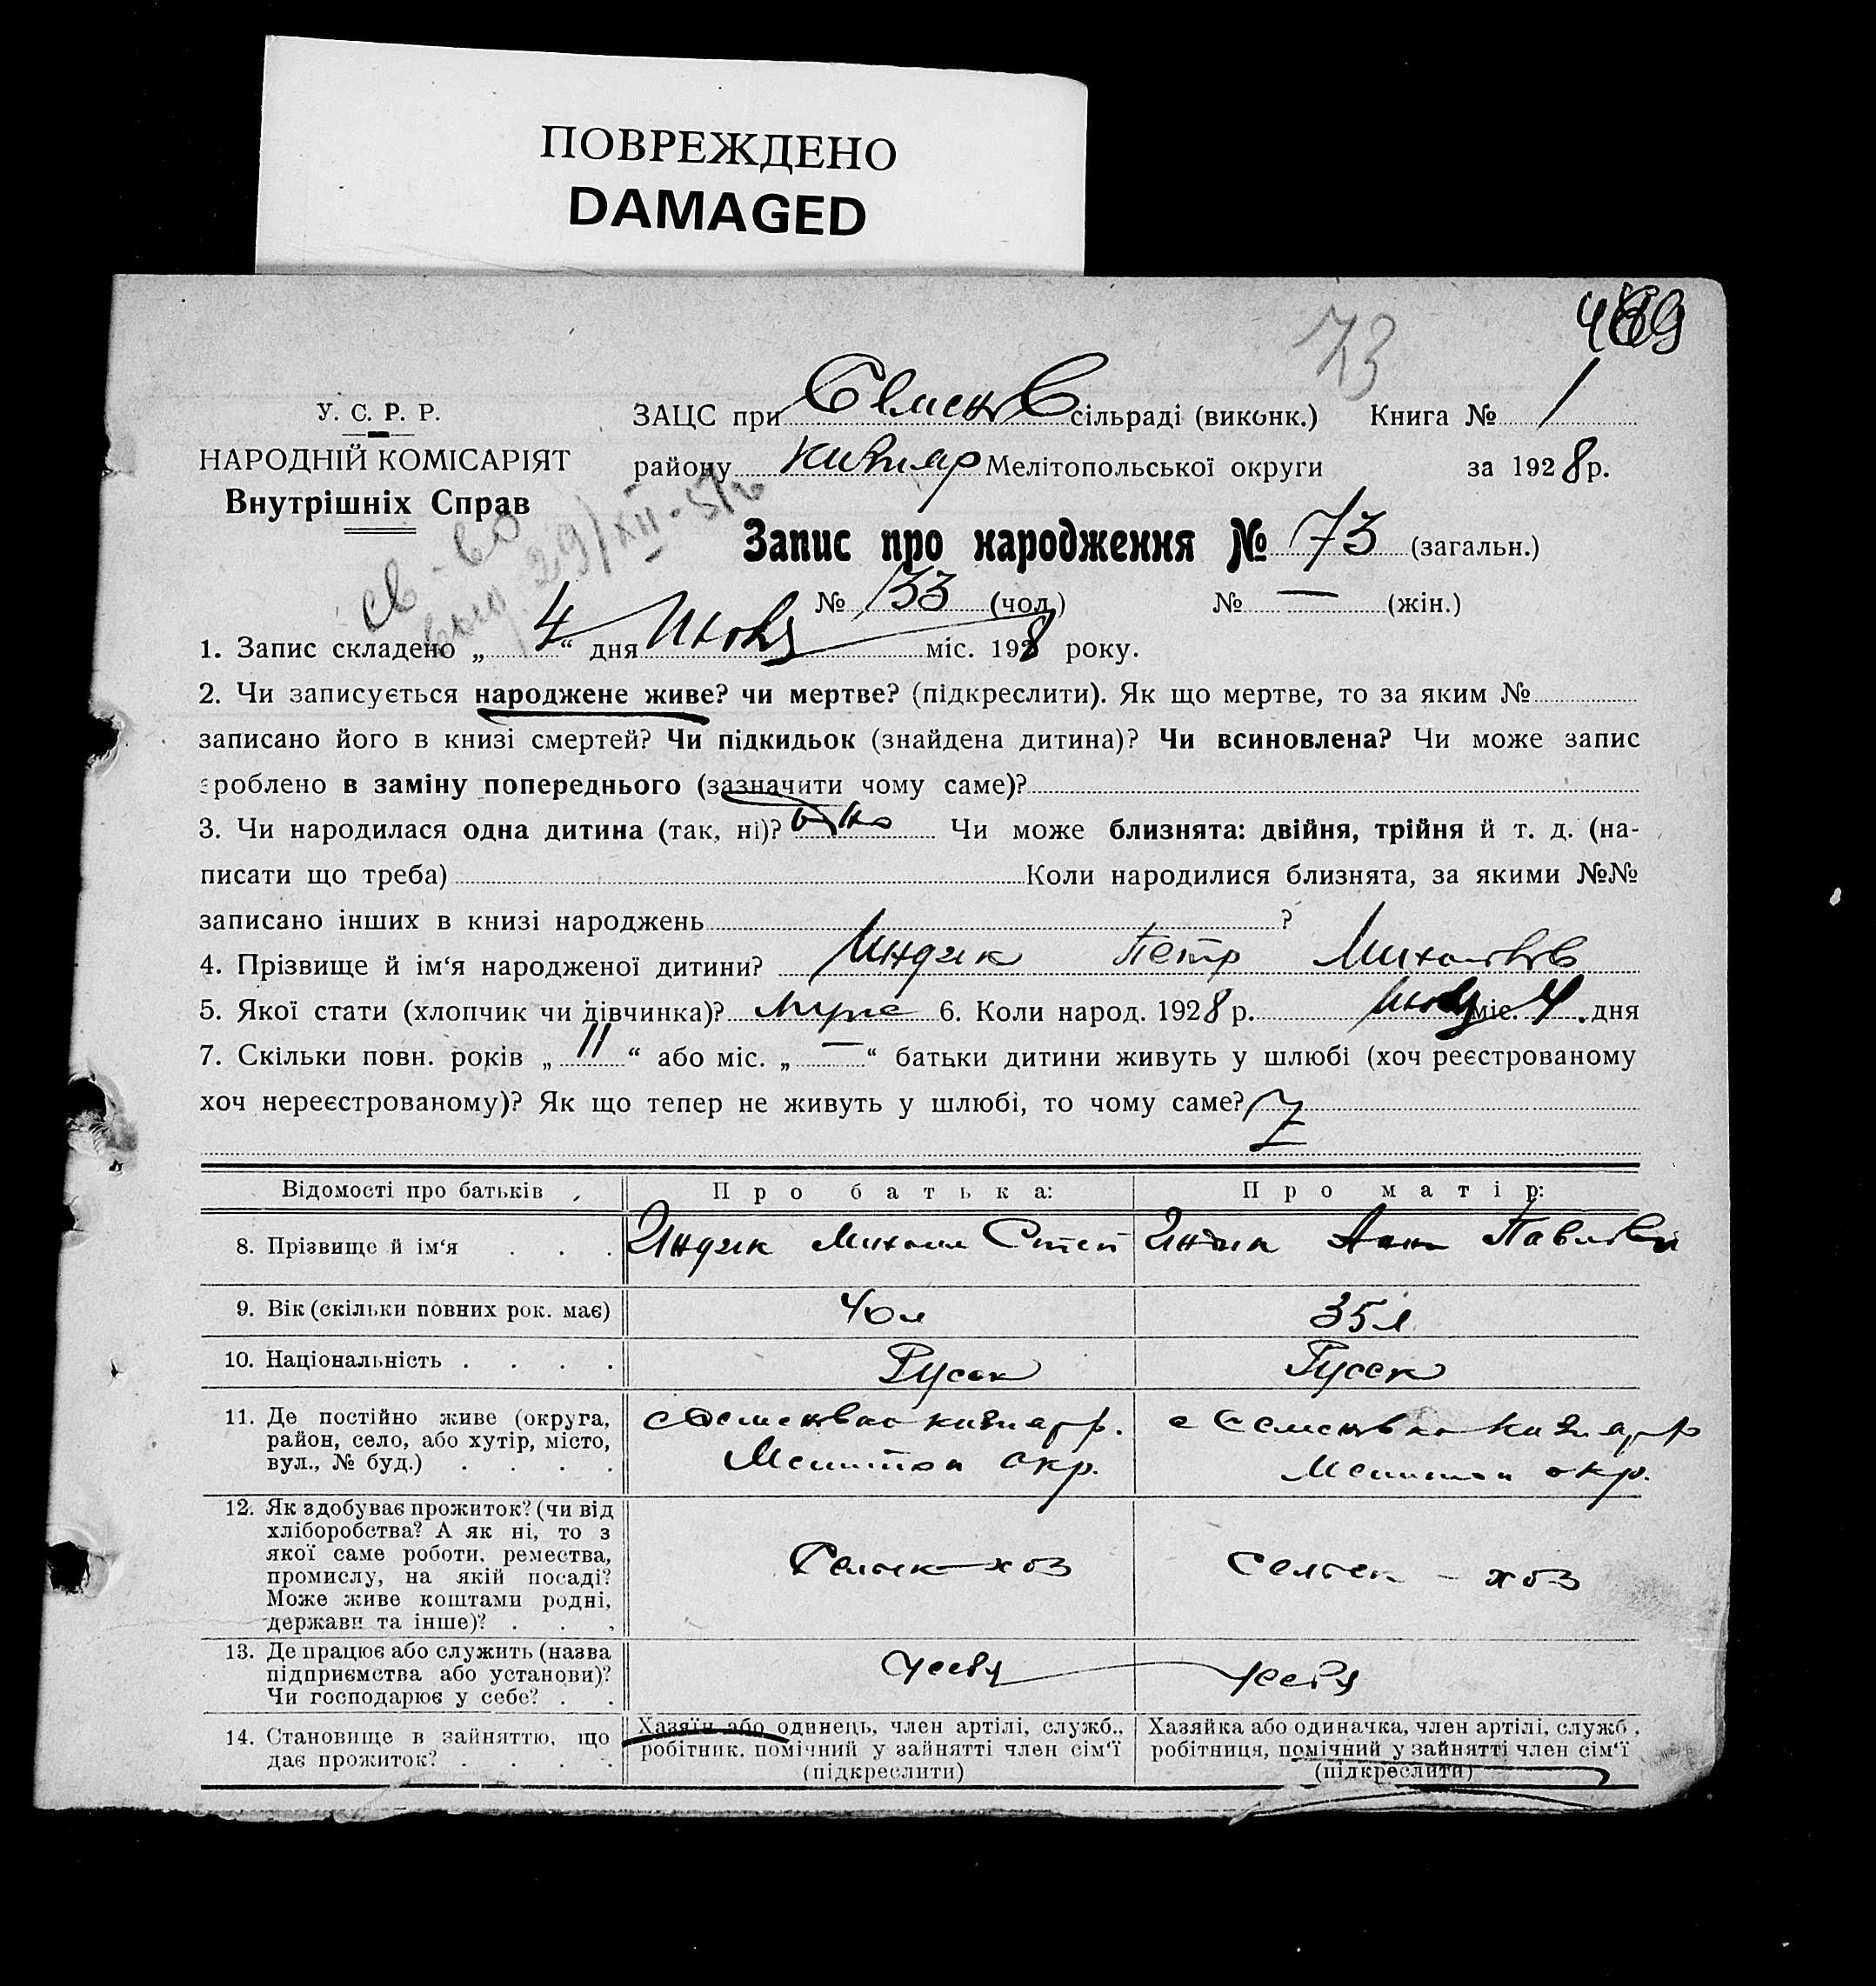 ПОВРЕЖДЕНО
DAMAGED
73
У. С. Р. Р.
НАРОДНІЙ КОМІСАРІЯТ
Внутрішніх Справ
ЗАЦС при сільраді (виконк.) Книга № 1
району Мелітопольської округи за 1928 р.
св-во
29/XII-51г
Запис про народження № 73 (загальн.)
№ 33 (чол.) № — (жін.)
1. Запис складено „ 4 “ дня міс. 1928 року.
2. Чи записується народжене живе? чи мертве? (підкреслити). Як що мертве, то за яким №
записано його в книзі смертей? Чи підкидьок (знайдена дитина)? Чи всиновлена? Чи може запис
зроблено в заміну попереднього (зазначити чому саме)?
3. Чи народилася одна дитина (так, ні)? Чи може близнята: двійня, трійня й т. д. (на-
писати що треба) Коли народилися близнята, за якими №№
записано інших в книзі народжень ?
4. Прізвище й ім‘я народженої дитини? Индик Петр
5. Якої стати (хлопчик чи дівчинка)? муже 6. Коли народ. 1928 р. міс. 4 дня
7. Скільки повн. років „ 11 “ або міс. „ — “ батьки дитини живуть у шлюбі (хоч реєстрованому
хоч нереєстрованому)? Як що тепер не живуть у шлюбі, то чому саме?
Відомості про батьків Про батька: Про матір:
8. Прізвище й ім‘я . . . Индик Михаил Степ Индик Анн Павловн
9. Вік (скільки повних рок. має) 40 л 35 л
10. Національність . . . . Русск Русск
11. Де постійно живе (округа,
район, село, або хутір, місто,
вул., № буд.) . . . .
с Семеновка р.
Мелитоп окр.
с Семеновка р
Мелитоп окр.
12. Як здобуває прожиток? (чи від
хліборобства? А як ні, то з
якої саме роботи, ремества,
промислу, на якій посаді?
Може живе коштами родні,
держави та інше)? . . .
Сельск-хоз
Сельск - хоз
13. Де працює або служить (назва
підприємства або установи)?
Чи господарює у себе? . .
у себя
у себя
14. Становище в зайняттю, що
дає прожиток? . . . .
Хазяїн або одинець, член артілі, служб.,
робітник, помічний у зайнятті член сім‘ї
(підкреслити)
Хазяйка або одиначка, член артілі, служб.,
робітниця, помічний у зайнятті член сім‘ї
(підкреслити)